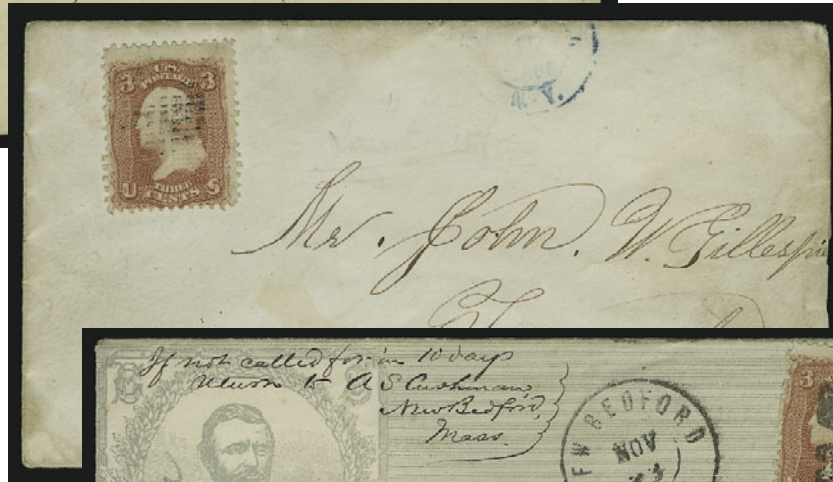 U.S.
POSTAGE
3 3
THREE
CENTS
U S
N.Y.
Mr. John. W. Gillespie
If not called for in 10 days
return to A S Cushman
New Bedford,
Mass.
EW BEDFORD
NOV
3